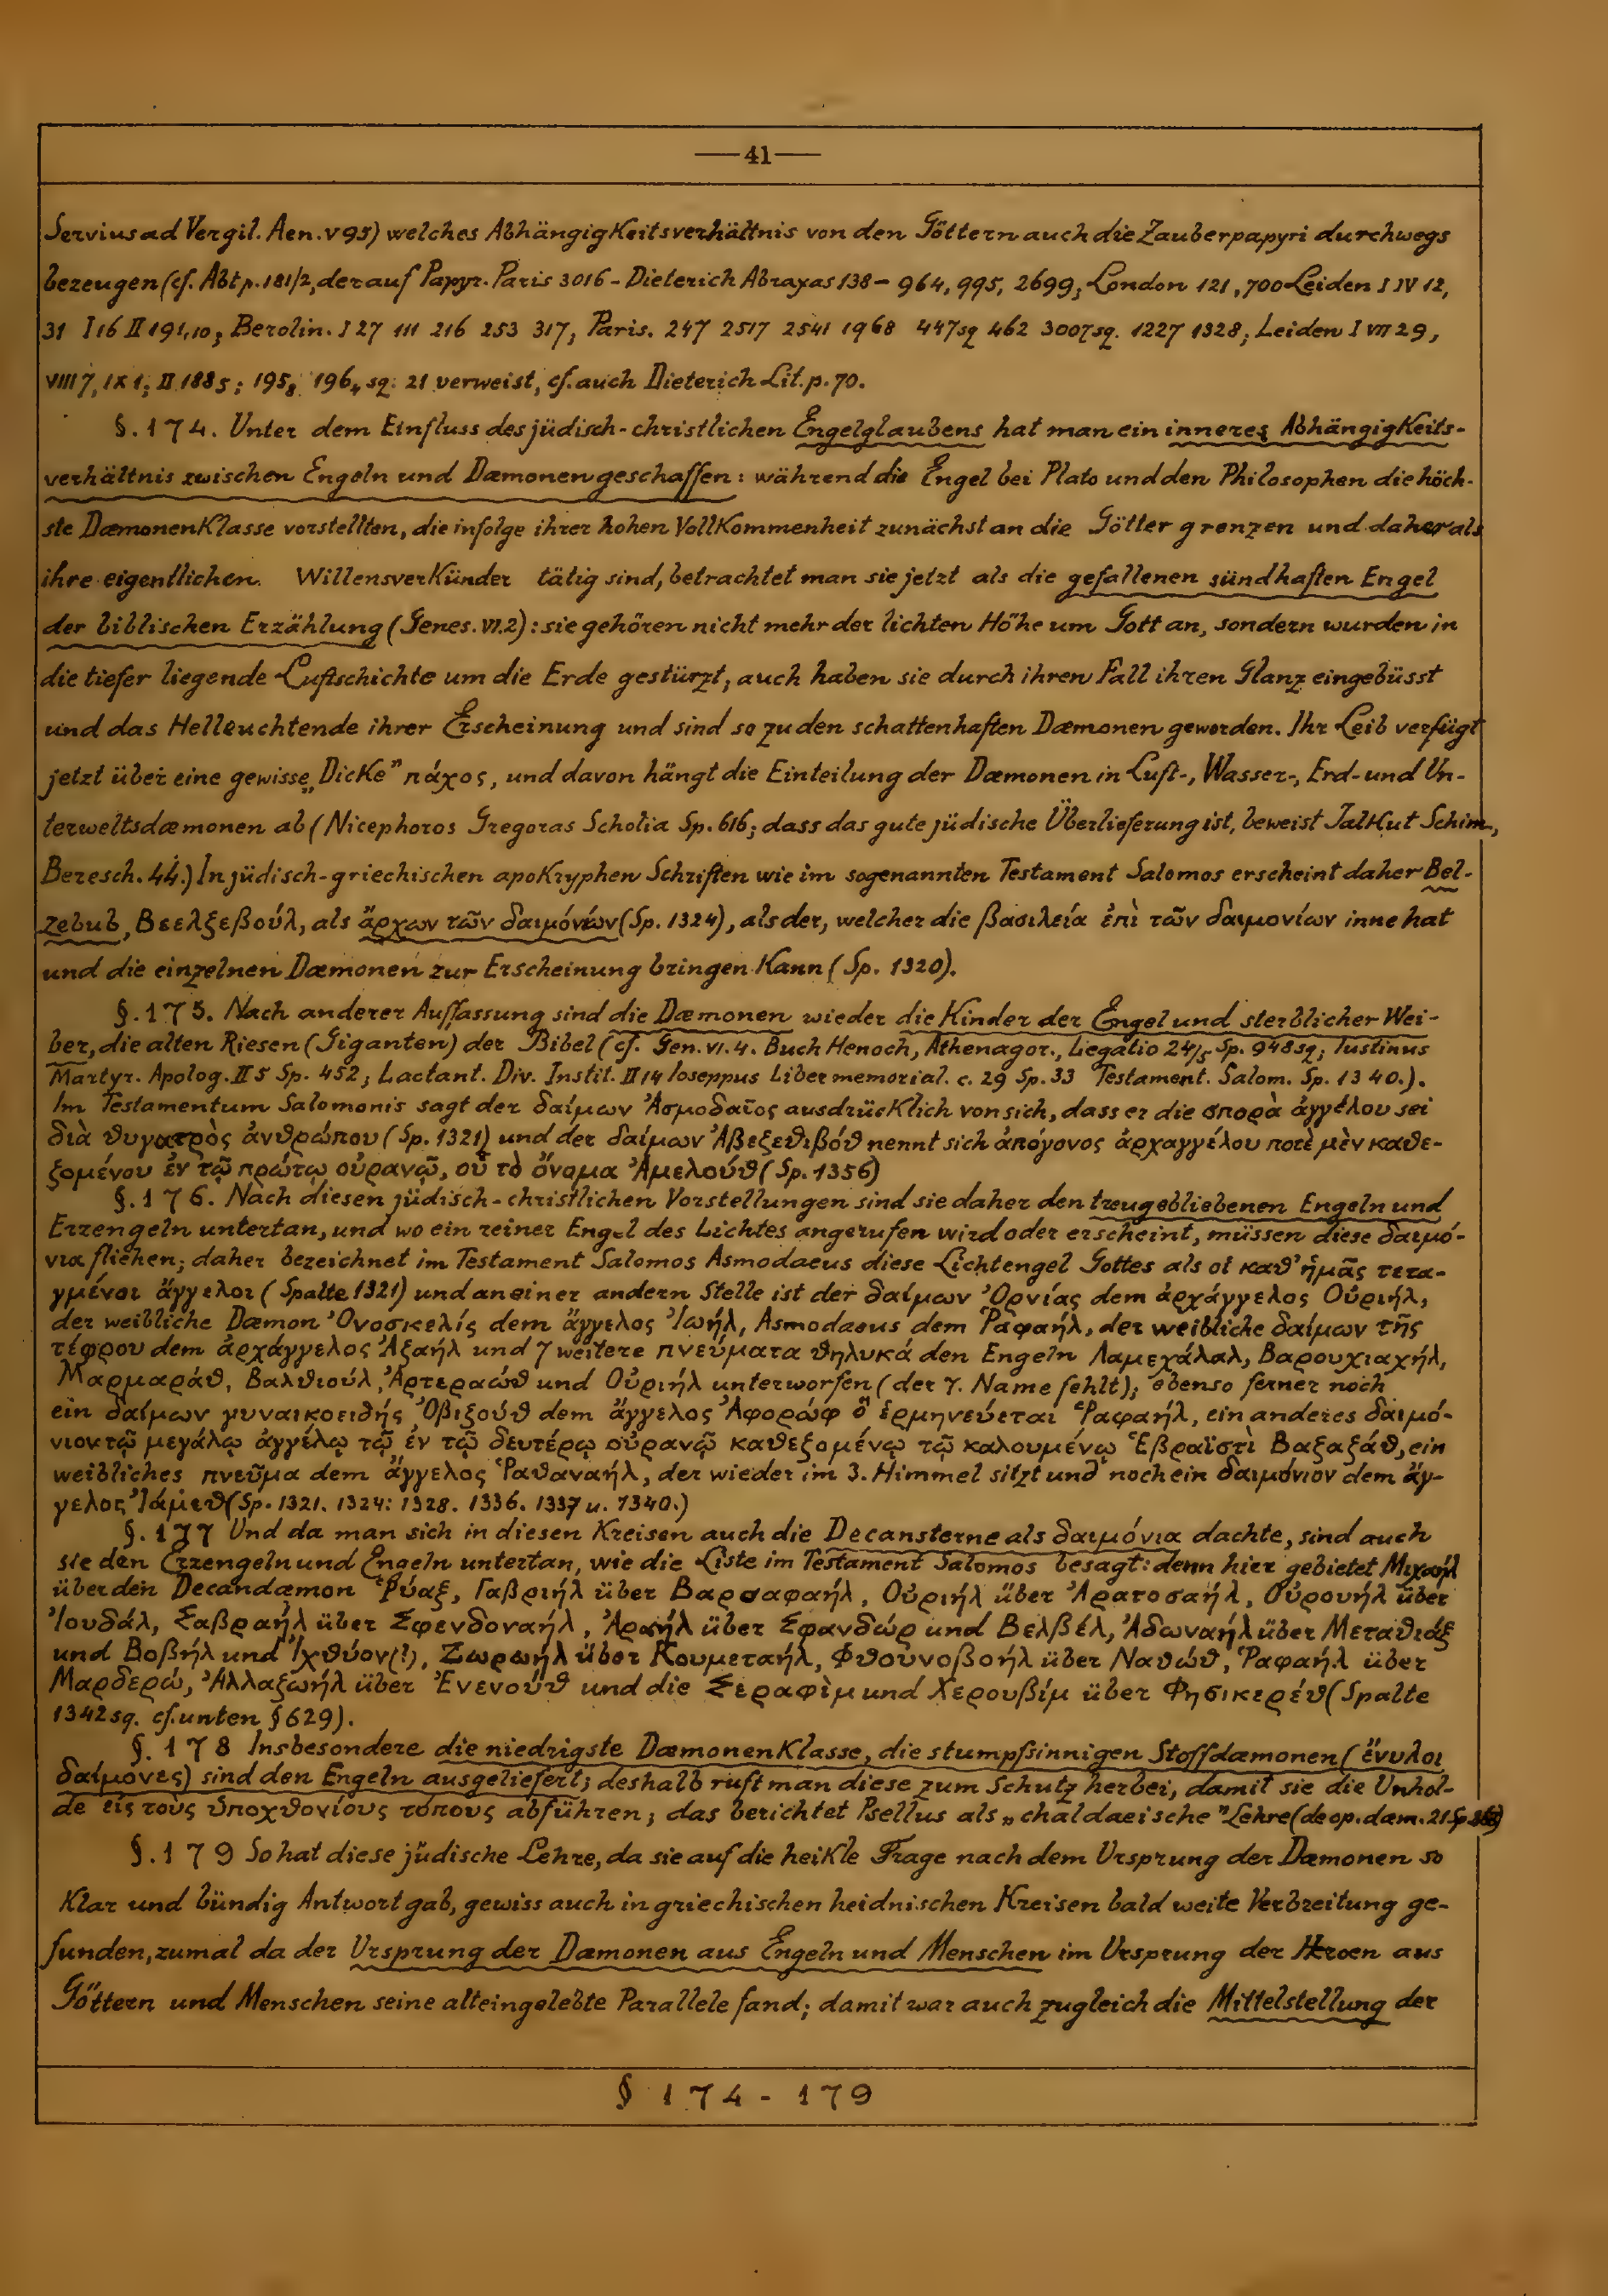 —41—
Servius ad Vergil. Aen. V 95) welches Abhängigkeitsverhältnis von den Göttern auch die Zauberpapyri durchwegs
bezeugen (cf. Abt p. 181/2, der auf Papyr. Paris 3016 - Dieterich Abraxas 138 - 964, 995, 2699; London 121, 700 Leiden I IV 12,
31 I 16 II 191,10; Berolin. I 27 111 216 253 317; Paris. 247 2517 2541 1968 447sq 462 3007sq. 1227 1328; Leiden I VII 29,
VIII 7, IX 1; II 188 5; 195, 8 196, 4 sq. 21 verweist, cf. auch Dieterich Lit. p. 70.
§. 174. Unter dem Einfluss des jüdisch-christlichen Engelglaubens hat man ein inneres Abhängigkeits-
verhältnis zwischen Engeln und Dæmonen geschaffen: während die Engel bei Plato und den Philosophen die höch-
ste Dæmonenklasse vorstellten, die infolge ihrer hohen Vollkommenheit zunächst an die Götter grenzen und daher als
ihre eigentlichen Willensverkünder tätig sind, betrachtet man sie jetzt als die gefallenen sündhaften Engel
der biblischen Erzählung (Genes. VI.2): sie gehören nicht mehr der lichten Höhe um Gott an, sondern wurden in
die tiefer liegende Luftschichte um die Erde gestürzt, auch haben sie durch ihren Fall ihren Glanz eingebüsst
und das Helleuchtende ihrer Erscheinung und sind so zu den schattenhaften Dæmonen geworden. Ihr Leib verfügt
jetzt über eine gewisse „Dicke" πάχος, und davon hängt die Einteilung der Dæmonen in Luft-, Wasser-, Erd- und Un-
terweltsdæmonen ab (Nicephoros Gregoras Scholia Sp. 616; dass das gute jüdische Überlieferung ist, beweist Jalkut Schim.,
Beresch. 44.) In jüdisch-griechischen apokryphen Schriften wie im sogenannten Testament Salomos erscheint daher Bel-
zebub, Βεελζεβούλ, als ἄρχων τῶν δαιμόνιών (Sp. 1324), als der, welcher die βασιλεία ἐπὶ τῶν δαιμονίων inne hat
und die einzelnen Dæmonen zur Erscheinung bringen kann (Sp. 1320).
§. 175. Nach anderer Auffassung sind die Dæmonen wieder die Kinder der Engel und sterblicher Wei-
ber, die alten Riesen (Giganten) der Bibel (cf. Gen. VI. 4. Buch Henoch, Athenagor., Legatio 24/5 Sp. 948sq; Iustinus
Martyr. Apolog. II 5 Sp. 452; Lactant. Div. Instit. II 14 Ioseppus Liber memorial. c. 29 Sp. 33 Testament. Salom. Sp. 1340.).
Im Testamentum Salomonis sagt der δαίμων Ἀσμοδαῖος ausdrücklich von sich, dass er die σπορὰ ἀγγέλου sei
διὰ θυγατρὸς ἀνθρώπου (Sp. 1321) und der δαίμων Ἀβεζεθιβόθ nennt sich ἀπόγονος ἀρχαγγέλου ποτὲ μὲν καθε-
ζομένου ἐν τῷ πρώτῳ οὐρανῷ, οὗ τὸ ὄνομα Ἀμελούθ (Sp. 1356)
§. 176. Nach diesen jüdisch-christlichen Vorstellungen sind sie daher den treugebliebenen Engeln und
Erzengeln untertan, und wo ein reiner Engel des Lichtes angerufen wird oder erscheint, müssen diese δαιμό-
νια fliehen; daher bezeichnet im Testament Salomos Asmodaeus diese Lichtengel Gottes als οἱ καθ' ἡμᾶς τετα-
γμένοι ἄγγελοι (Spalte 1321) und an einer andern Stelle ist der δαίμων Ὀρνίας dem ἀρχάγγελος Οὐριήλ,
der weibliche Dæmon Ὀνοσκελίς dem ἄγγελος Ἰωήλ, Asmodaeus dem Ῥαφαήλ, der weibliche δαίμων τῆς
τέφρου dem ἀρχάγγελος Ἀζαήλ und 7 weitere πνεύματα θηλυκά den Engeln Λαμεχάλαλ, Βαρουχιαχήλ,
Μαρμαράθ, Βαλθιούλ, Ἀρτεραώθ und Οὐριήλ unterworfen (der 7. Name fehlt); ebenso ferner noch
ein δαίμων γυναικοειδής Ὀβιζούθ dem ἄγγελος Ἀφορώφ ὃ ἑρμηνεύεται Ῥαφαήλ, ein anderes δαιμό-
νιον τῷ μεγάλῳ ἀγγέλῳ τῷ ἐν τῷ δευτέρῳ οὐρανῷ καθεζομένῳ τῷ καλουμένῳ Ἑβραϊστὶ Βαζαζάθ, ein
weibliches πνεῦμα dem ἄγγελος Ῥαθαναήλ, der wieder im 3. Himmel sitzt und noch ein δαιμόνιον dem ἄγ-
γελος Ἰάμεθ (Sp. 1321. 1324: 1328. 1336. 1337 u. 1340.)
§. 177 Und da man sich in diesen Kreisen auch die Decansterne als δαιμόνια dachte, sind auch
sie den Erzengeln und Engeln untertan, wie die Liste im Testament Salomos besagt: denn hier gebietet Μιχαήλ
über den Decandæmon Ῥύαξ, Γαβριήλ über Βαρσαφαήλ, Οὐριήλ über Ἀρατοσαήλ, Οὐρουήλ über
Ἰουδάλ, Σαβραήλ über Σφενδοναήλ, Ἀραήλ über Σφανδώρ und Βελβέλ, Ἀδωναήλ über Μεταθιάξ
und Βοβήλ und Ἰχθύον (!), Ζωρωήλ über Κουμεταήλ, Φθουνοβοήλ über Ναθώθ, Ῥαφαήλ über
Μαρδερώ, Ἀλλαζωήλ über Ἐνενούθ und die Σεραφὶμ und Χερουβίμ über Φησικερέθ (Spalte
1342sq. cf. unten § 629).
§. 178 Insbesondere die niedrigste Dæmonenklasse, die stumpfsinnigen Stoffdæmonen (ἔνυλοι
δαίμονες) sind den Engeln ausgeliefert; deshalb ruft man diese zum Schutz herbei, damit sie die Unhol-
de εἰς τοὺς ὑποχθονίους τόπους abführen; das berichtet Psellus als „chaldaeische" Lehre (de op. dæm. 21 Sp.
§. 179 So hat diese jüdische Lehre, da sie auf die heikle Frage nach dem Ursprung der Dæmonen so
klar und bündig Antwort gab, gewiss auch in griechischen heidnischen Kreisen bald weite Verbreitung ge-
funden, zumal da der Ursprung der Dæmonen aus Engeln und Menschen im Ursprung der Heroen aus
Göttern und Menschen seine alteingelebte Parallele fand; damit war auch zugleich die Mittelstellung der
§ 174 - 179